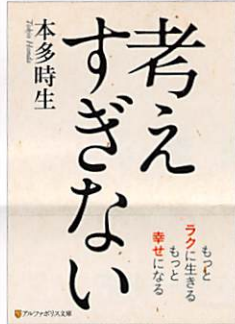 考え
すぎない
本多時生
Tokio Honda
もっと
ラクに生きる
もっと
幸せになる
アルファポリス文庫